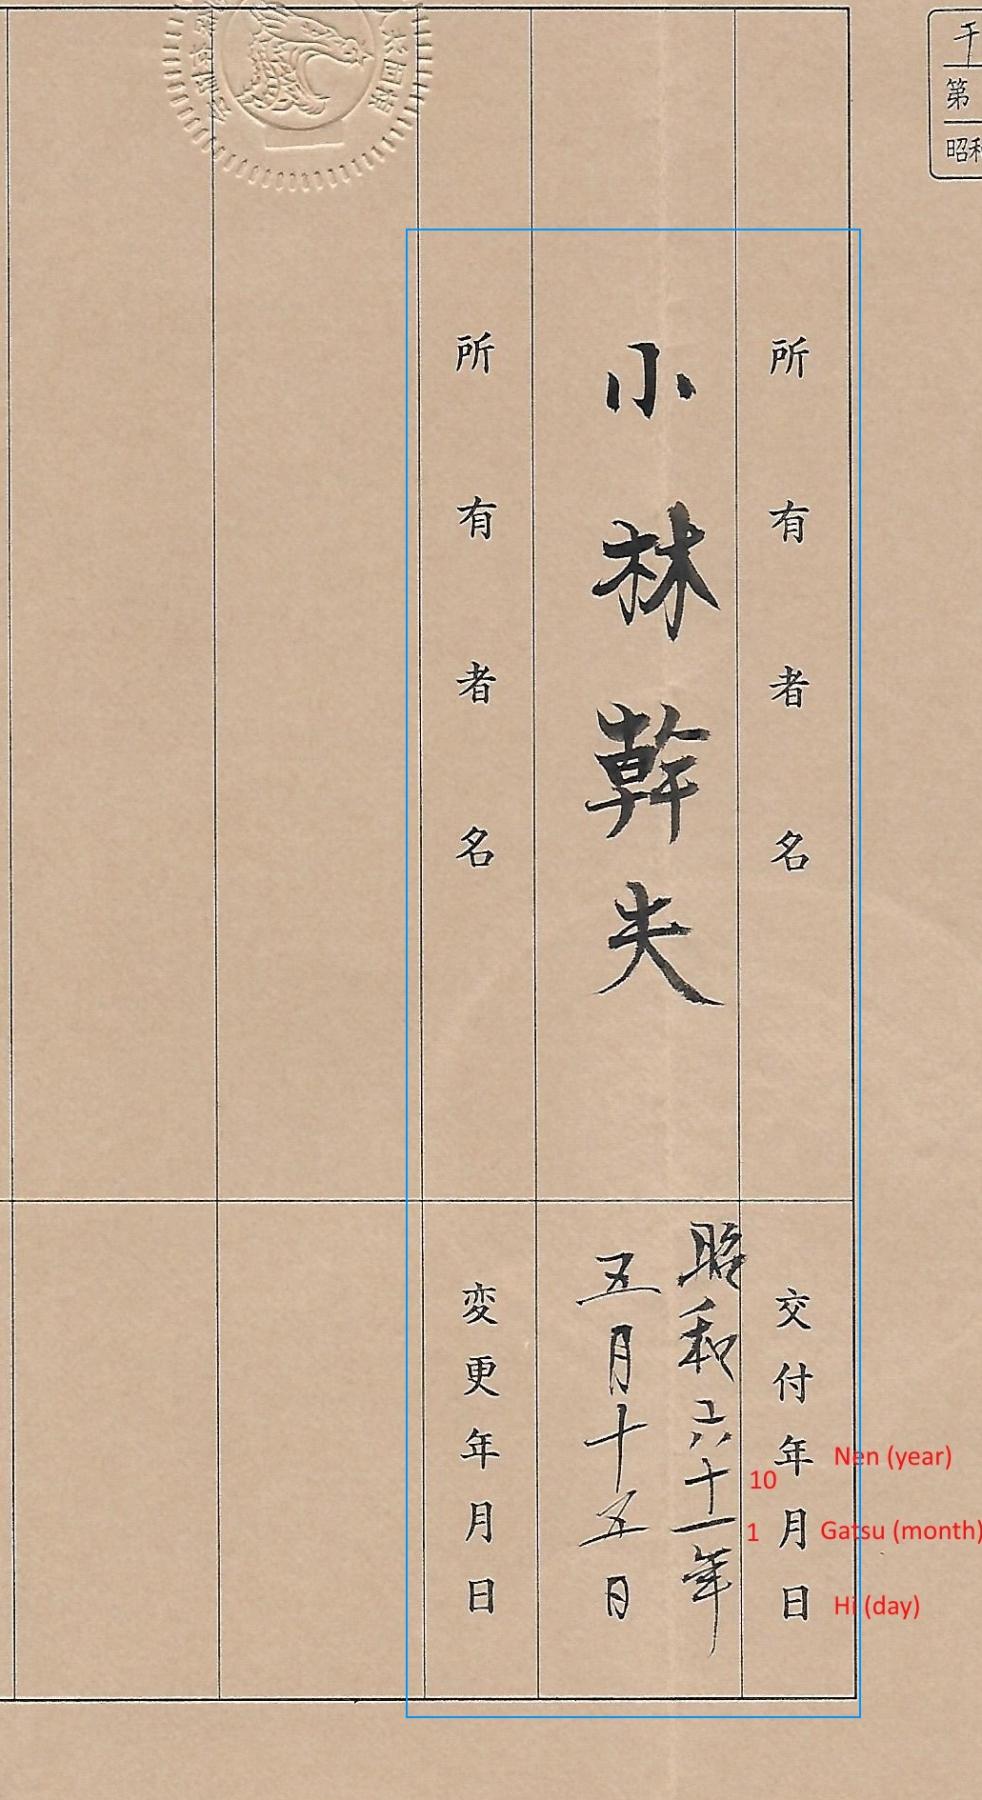 千
第
昭和
所有者名
小林幹夫
交付年月日
昭和六十一年
五月十五日
所有者名
変更年月日
Nen (year)
10
1
Gatsu (month)
Hi (day)